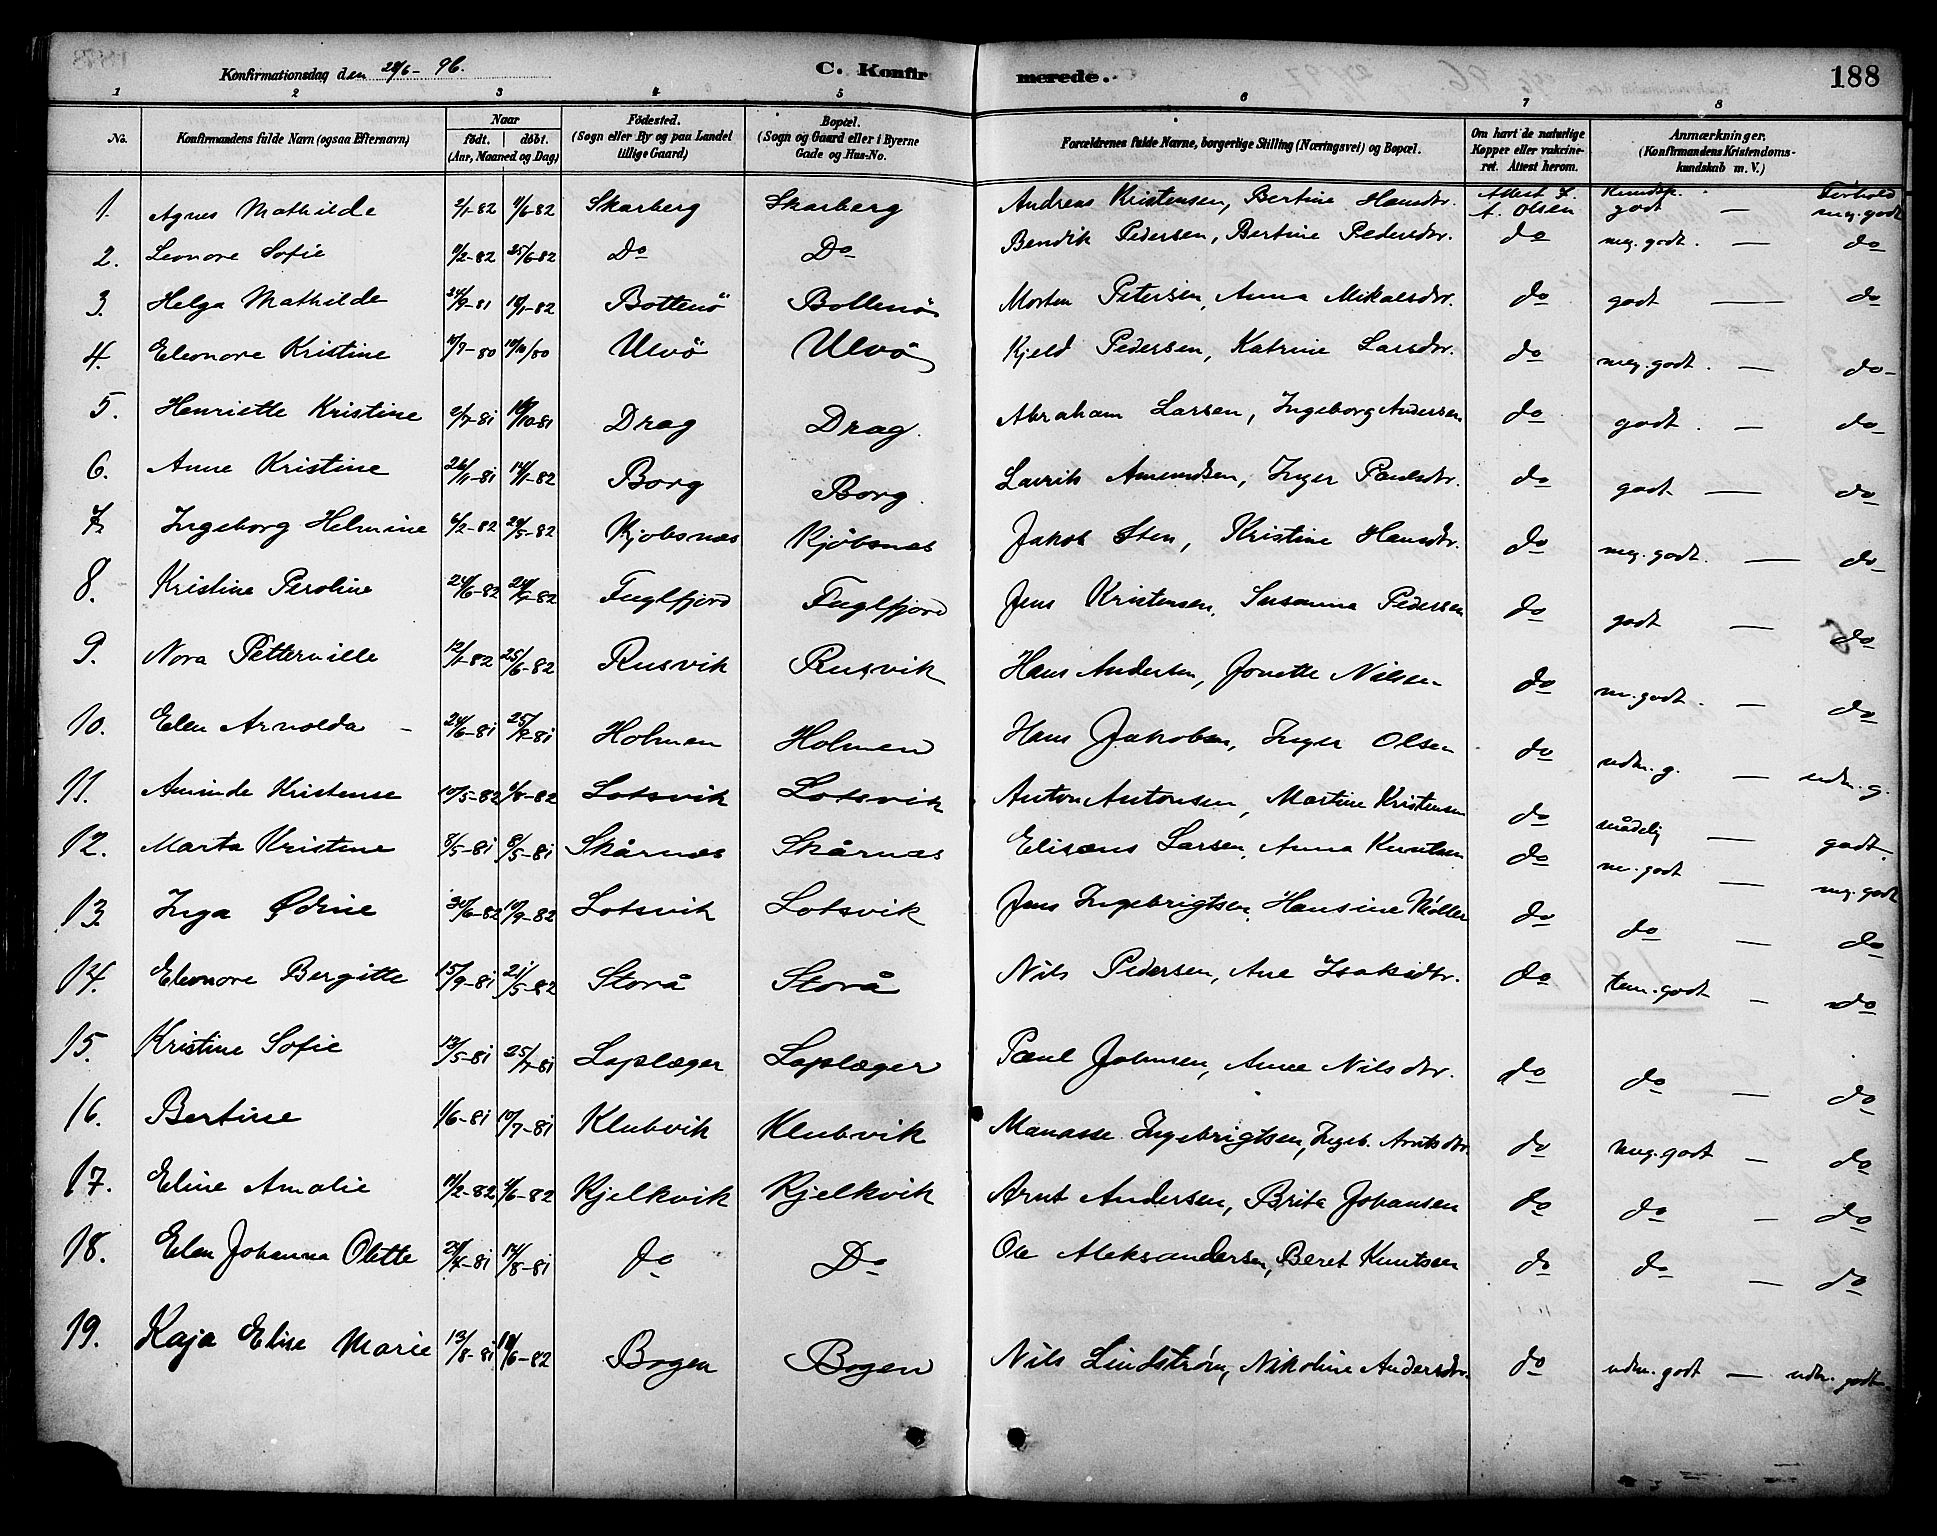 Konfirmationsdag den 28/6-96. C. Konfirmerede. 188
1 2 3 4 5 6 7 8
No. Konfirmandens fulde Navn (ogsaa Efternavn) Naar født. døbt. (Aar, Maaned og Dag) Fødested. (Sogn eller By og paa Landet tillige Gaard) Bopæl. (Sogn og Gaard eller i Byerne Gade og Hus-No. Forældrenes fulde Navne, borgerlige Stilling (Næringsvei) og Bopæl. Om havt de naturlige Kopper eller vakcineret. Attest herom. Anmærkninger. (Konfirmandens Kristendomskundskab m. V.)
1. Agnes Mathilde 2/1-82 11/6-82 Skarberg Skarberg Andreas Kristensen, Bertine Hansdtr. Attest f. A. Olsen Kundsk. godt — Forhold meg. godt
2. Leonore Sofie 11/2-82 25/6-82 Do Do Bendik Pedersen, Bertine Pedersdtr. do meg. godt. — do
3. Helga Mathilde 24/9-81 Bottenö Bottenö Morten Petersen, Anna Mikalsdtr. do godt — do
4. Eleonore Kristine Ulvö Ulvö Kjeld Pedersen, Katrine Larsdtr. do meg. godt. — do
5. Henriette Kristine 2/7-81 Drag Drag. Abraham Larsen, Ingeborg Andersen do godt. — do
6. Anne Kristine 26/11-81 14/1-82 Borg Borg. Lavrits Amundsen, Inger Paulsdtr. do godt — do
7. Ingeborg Helmine 4/2-82 Kjøbsnæs Kjøbsnæs Jakob Sten, Kristine Hansdtr. do meg. godt. — do
8. Kristine Peroline Fuglfjord Fuglfjord Jens Kristensen, Susanna Pedersen do godt — do
9. Nora Petterville 12/1-82 25/6-82 Rusvik Rusvik Hans Andersen, Jonette Nilsen do m. godt. — do
10. Elen Arnolda 24/6-81 Holmen Holmen Hans Jakobsen, Inger Olsen do udm. g. — udm. g.
11. Aminde Kristense Lotsvik Lotsvik Anton Antonsen, Martine Kristensen do mådelig — godt.
12. Marta Kristine 8/5-81 Skårnæs Skårnæs Elisæus Larsen, Anna Knutsen do m. godt — meg. godt
13. Inga Ødine 30/6-82 10/9-82 Lotsvik Lotsvik Jens Ingebrigtsen, Hansine Møller do do — do
14. Eleonore Bergitte 15/9-81 21/5-82 Storå Storå Nils Pedersen, Ane Isaksdtr. do tem. godt — do
15. Kristine Sofie 13/5-81 25/7-81 Laplæger Laplæger Paul Johnsen, Anne Nilsdtr. do do — do
16. Bertine 1/6-81 10/7-81 Klubvik Klubvik Manasse Ingebrigtsen, Ingeb. Arntsdtr. do meg. godt — do
17. Eline Amalie 11/2-82 Kjelkvik Kjelkvik Arnt Andersen, Brita Johansen do do — do
18. Elen Johanna Olette 14/8-81 do Do Ole Aleksandersen, Beret Knutsen do do — do
19. Kaja Elise Marie 13/8-81 Bogen Bogen Nils Lindstrøm, Nikoline Andersdtr. do udm. godt — udm. godt.